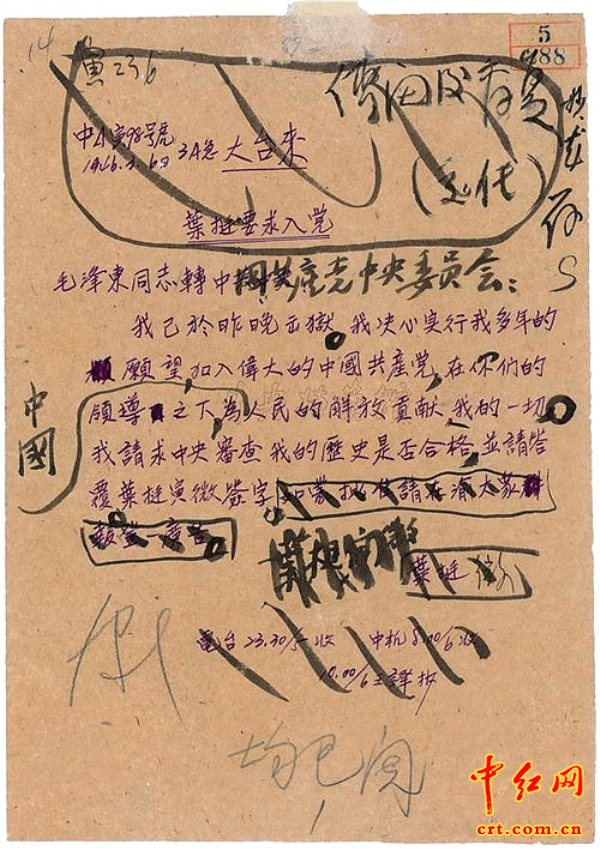 14
寅236
5
88
中A寅98號
1946.3.6日 3A急 大台來
葉挺要求入党
毛泽東同志轉中国共產党中央委员会：
我已於昨晚出獄。我决心实行我多年的
願望，加入偉大的中國共産党，在你们的
中國
領導之下，為人民的解放貢献我的一切。
我請求中央審查我的歷史是否合格，並請答
覆。葉挺寅微簽字
報登一廣告
葉挺 微
電台23.30/5-收 中机8.00/6收
10.00/6王譯抄
均已阅
中红网
crt.com.cn